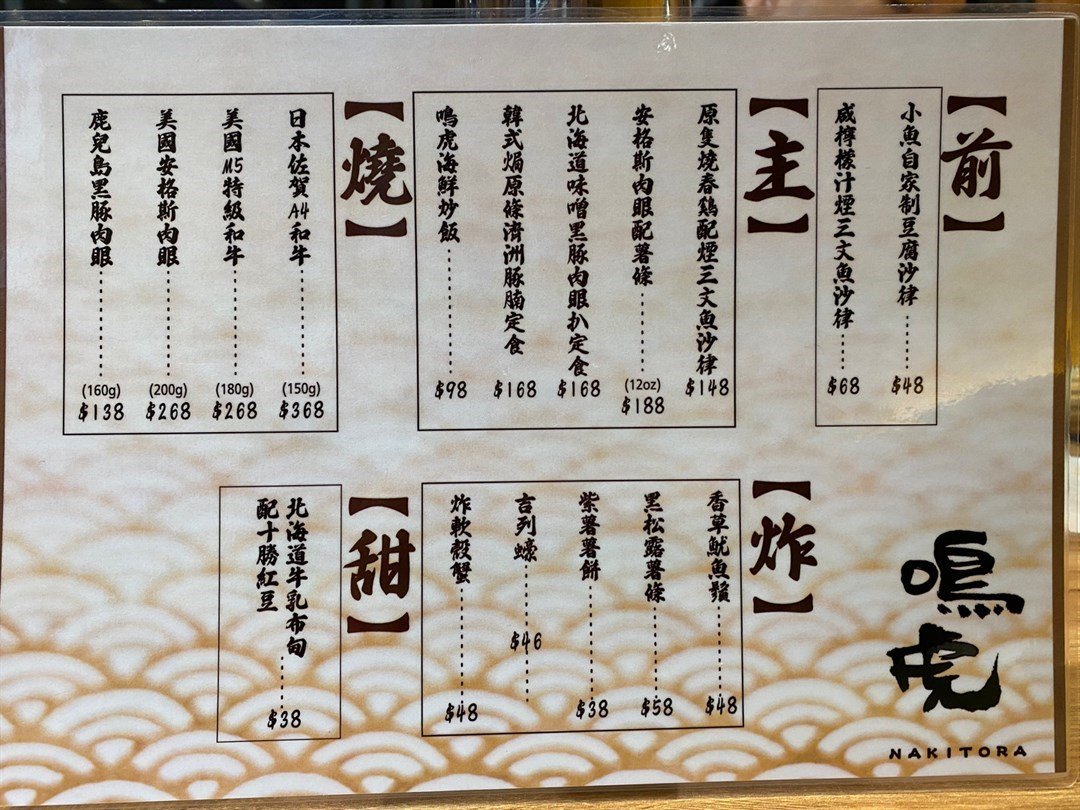 【前】
小魚自家制豆腐沙律 $48
咸檸檬汁煙三文魚沙律 $68
【主】
原隻燒春鶏配煙三文魚沙律 $148
安格斯肉眼配薯條 (12oz) $188
北海道味噌黑豚肉眼扒定食 $168
韓式焗原條濟洲豚腩定食 $168
鳴虎海鮮炒飯 $98
【燒】
日本佐賀A4和牛 (150g) $368
美國M5特級和牛 (180g) $268
美國安格斯肉眼 (200g) $268
鹿兒島黑豚肉眼 (160g) $138
【炸】
香草魷魚鬚 $48
黑松露薯條 $58
紫薯薯餅 $38
吉列蠔 $46
炸軟殼蟹 $48
【甜】
北海道牛乳布甸
配十勝紅豆 $38
鳴虎
NAKITORA